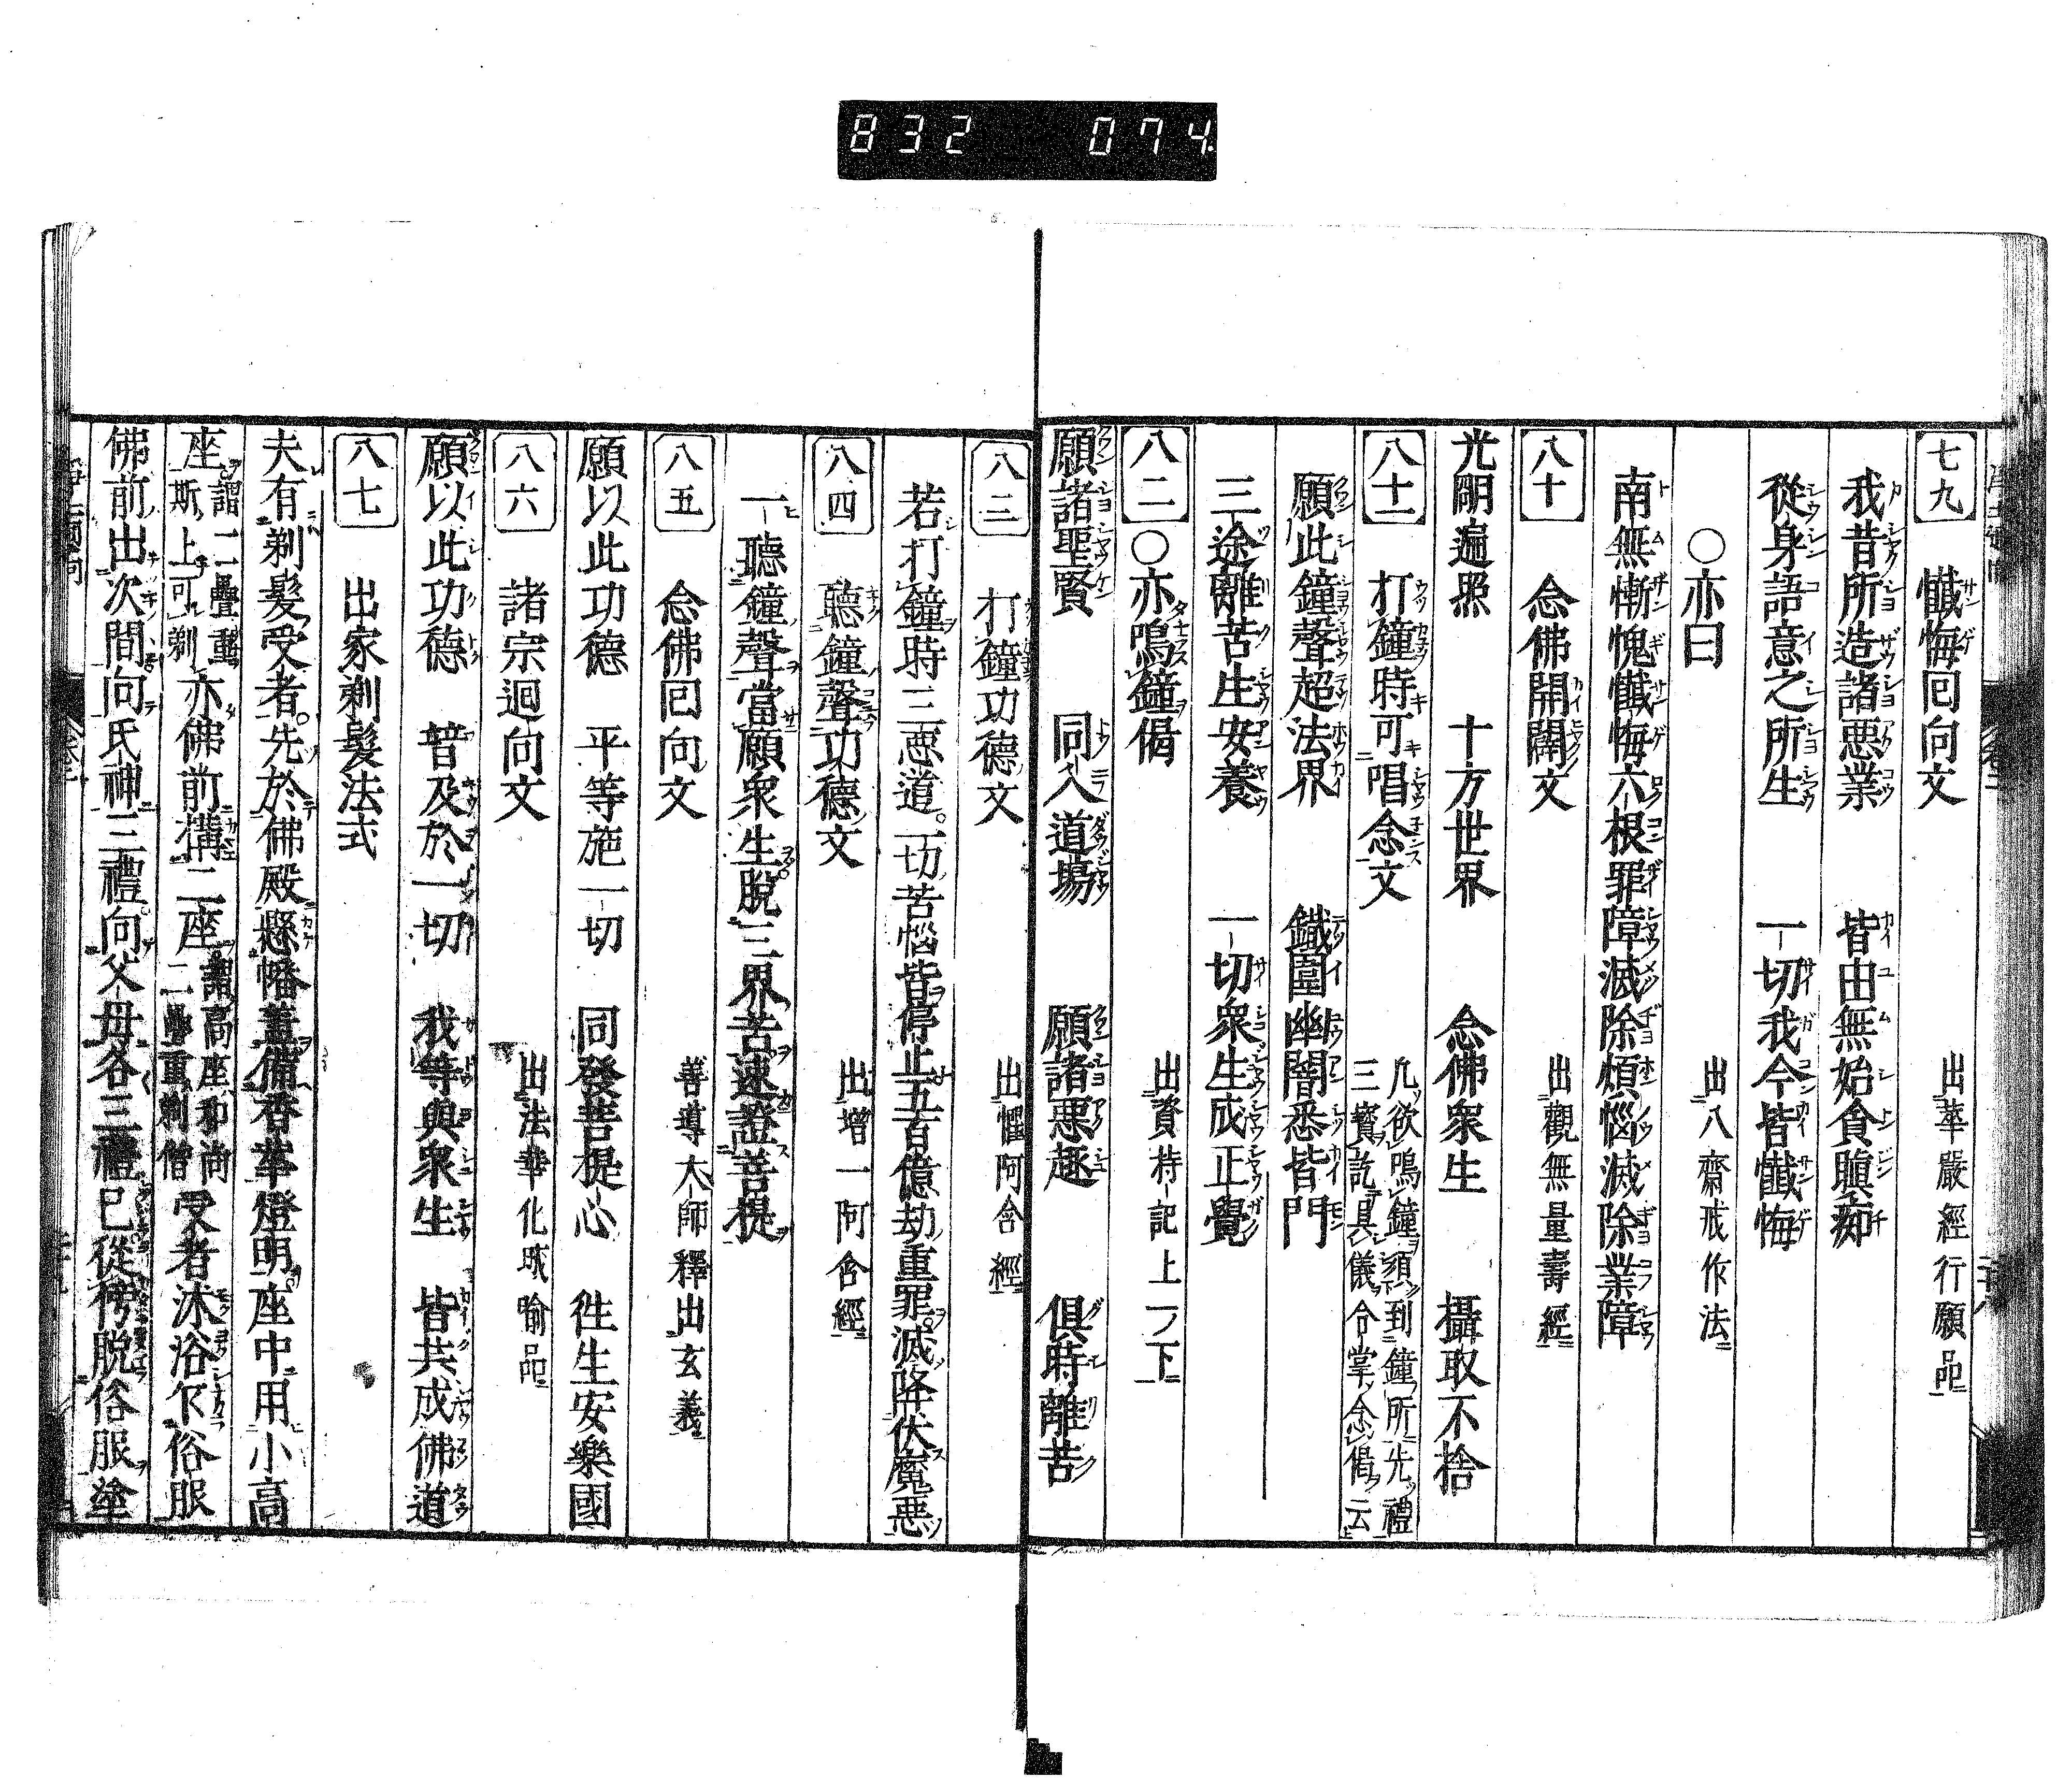 832 074
七九 懺悔回向文 出華嚴經行願品
我昔所造諸悪業 皆由無始貪瞋痴
從身語意之所生 一切我今皆懺悔
○亦曰 出八齋戒作法
南無慚愧懺悔六根罪障滅除煩惱滅除業障
八十 念佛開闢文 出觀無量壽經
光明遍照 十方世界 念佛衆生 攝取不捨
八十一 打鐘時可唱念文 凡欲鳴鐘須到鐘所先禮三寶訖具儀合掌念偈云
願此鐘聲超法界 鐵圍幽闇悉皆門
三途離苦生安養 一切衆生成正覺
八二 ○亦鳴鐘偈 出資持記上一ノ下
願諸聖賢 同入道場 願諸悪趣 俱時離苦
八三 打鐘功德文 出 阿含經
若打鐘時三悪道一切苦惱皆停止五百億劫重罪滅降伏魔悪
八四 聽鐘聲功德文 出増一阿含經
一聽鐘聲當願衆生脱三界苦速證菩提
八五 念佛回向文 善導大師釋出玄義
願以此功德 平等施一切 同發菩提心 徃生安樂國
八六 諸宗迴向文 出法華化城喻品
願以此功德 普及於一切 我等與衆生 皆共成佛道
八七 出家剃髮法式
夫有剃髮受者先於佛殿懸幡蓋備香華燈明座中用小高
座謂二疊重斯上可剃亦佛前搆二座謂高座和尚二疊重剃僧受者沐浴乍俗服
佛前出次間向氏神三禮向父母各三禮已從 脱俗服塗